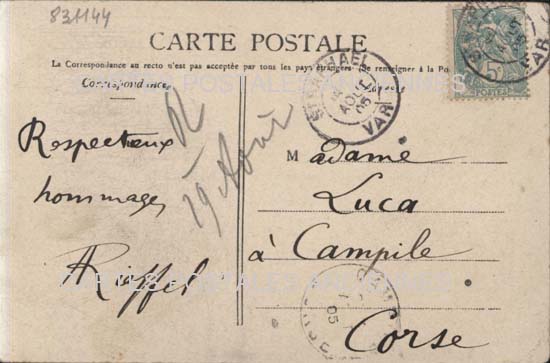 831144
CARTE POSTALE
La Correspondance au recto n'est pas acceptée par tous les pays étrangers. Se renseigner à la Po
Correspondance
Respectueux
hommages
R
19 Août
M adame
Luca
à Campile
Corse
ST RAPHAEL
AOUT
05
VAR
5c
POSTES
VAR
05